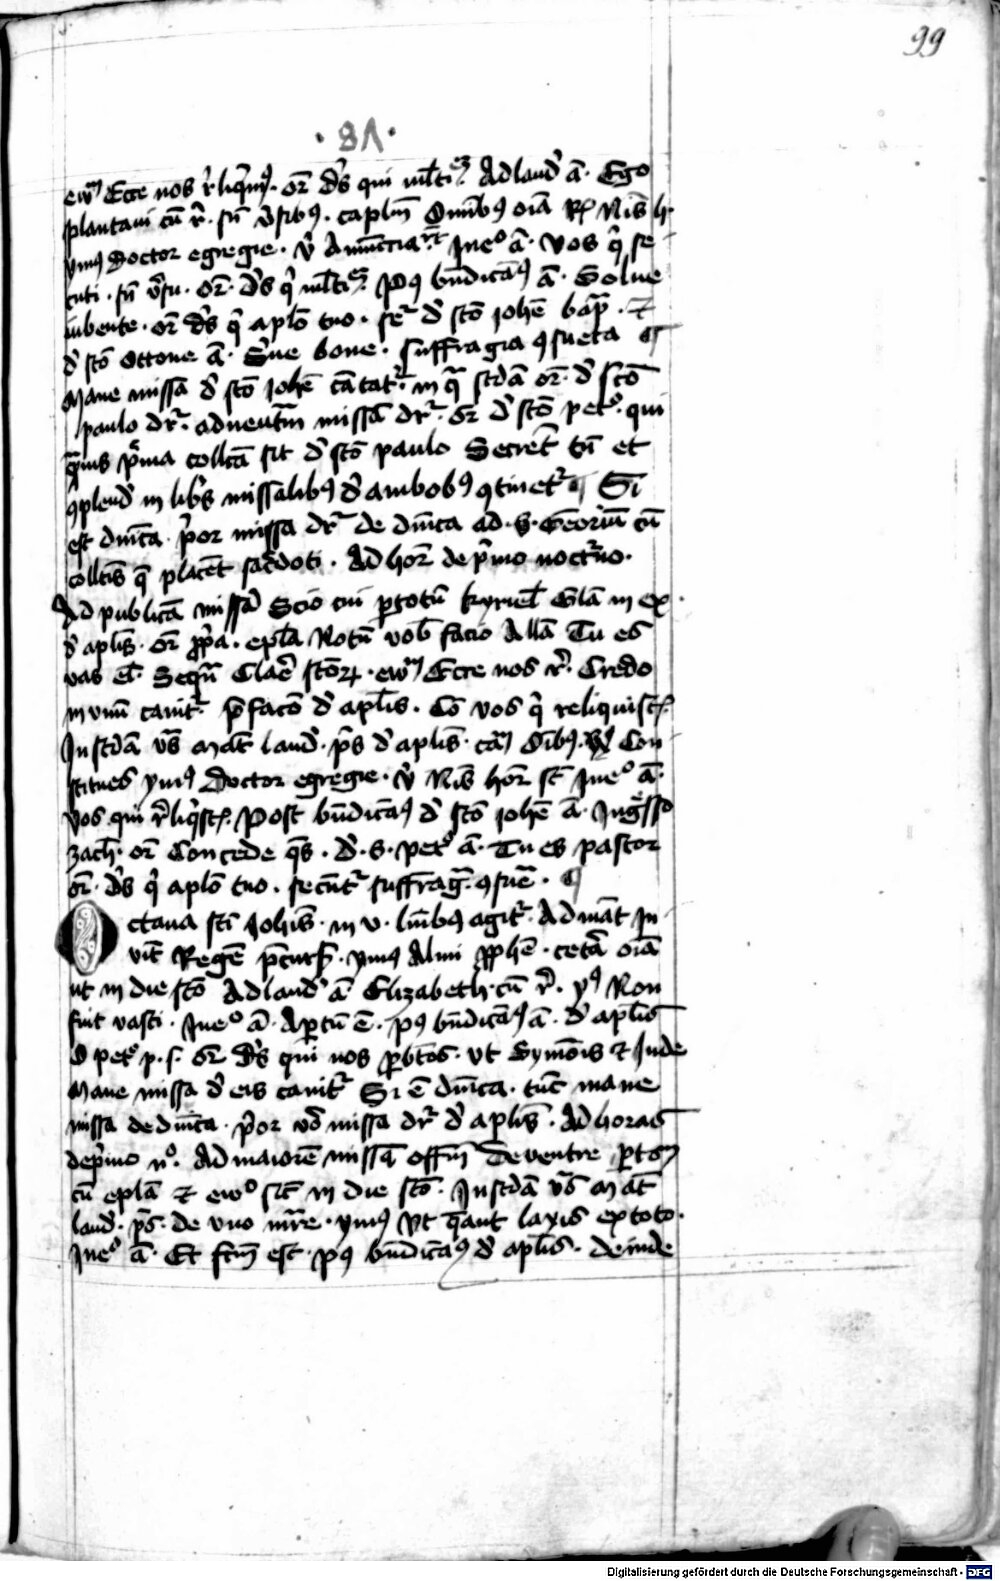 99
· 81 ·
ewm Ecce nos rliqm9. or ds qui mlti Ad laud a. Ego
plantaui cu r. su vsibus. caplm Omibus oia Rx Nis h
ymus Doctor egregie. v Annuctia Ineo a. Vos q se
cuti. su vsu. or. ds q mlti p9 bndicas a. Solue
iubente. or ds q aplo tuo. ser d sco Johe bap. et
d sco Ottone a. Sue bone. suffragia 9sueta ¶
Mane missa d sco Johe catat in qa scda or. d sco
paulo dr. aduentm missa dr. or d sco peto. qui
quis pma collca sit d sco paulo Secret tn et
9plend in libs missalibus d ambobus 9tinet ¶ Si
est dnica. por missa dr de dnica ad S. Georiu cu
collcis q placet sacdoti. Ad hor de pmo nocturno.
Ad publica missa Scio cui ptotu kyriel Gla in ex
d aplis. or ppa. epla Notu vob facio Alla Tu es
vas el. Sequa Clare scor. ewm Ecce nos r. Credo
in vnu canit pfaco d aplis. Co vos q reliquist
In scda vs Mat laud. ps d aplis. ca Oibus. Con
stitues ymus Doctor egregie. v Nis hor st Ineo a.
Vos qui rliqst. Post bndicas d sco Johe a. Ingsso
zach. or Concede qs. d. s. peto a. Tu es pastor
or. ds q aplo tuo. secunt suffrag. 9sue. ¶
Octaua sci Johis. in v. lnibus agit. Ad mat In
uit Rege pcurs. ymus Almi pphe. ceta oia
ut in die sco Ad laud a Elizabeth. cu r. y9 Non
fuit vasti. Ineo a. Aptu e. p9 bndicas a. d aplis
O peto p. s. or Ds qui nos pbtos. vt Symonis et Jude
Mane missa d eis canit Si e dnica. tuc mane
missa de dnica. por vo missa dr d aplis. Ad horas
de pmo no. Ad maiore missa offm De ventre ptot
cu epla et ewo sit in die sco. In scda vs Mat
laud. ps. de vno mre. ymus Vt queant laxis ex toto.
Ineo a. Et fcm est. p9 bndicas d aplis. deinde
Digitalisierung gefördert durch die Deutsche Forschungsgemeinschaft - DFG